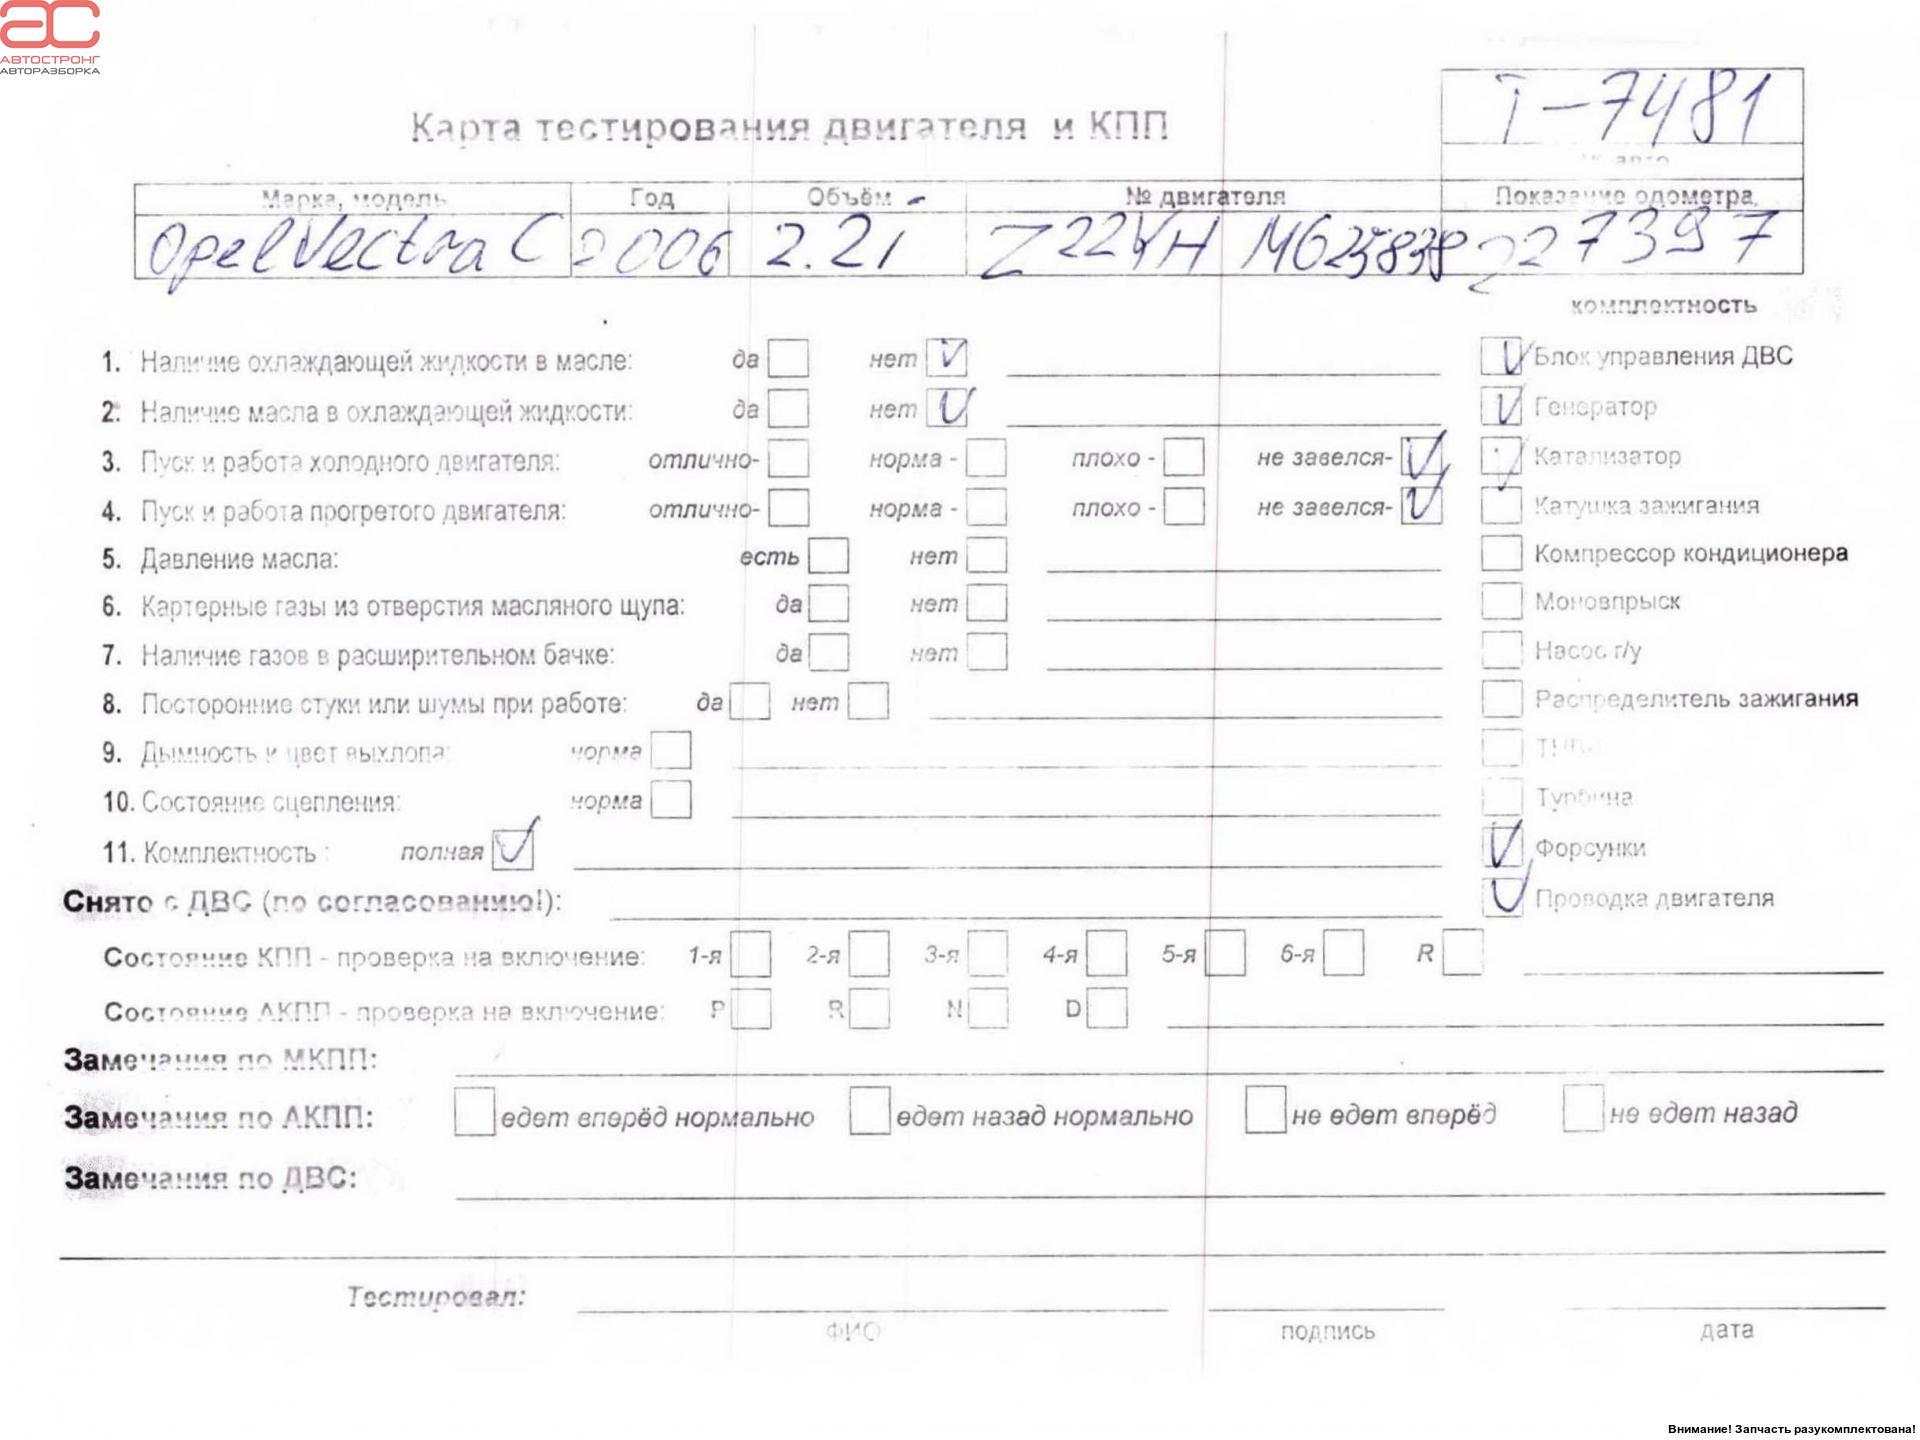 АВТОСТРОНГ
АВТОРАЗБОРКА
Т-7481
Карта тестирования двигателя и КПП
№ авто
Марка, модель Год Объём № двигателя Показание одометра,
Opel Vectra C 2006 2.2i Z22YH M625838 227397
комплектность
1. Наличие охлаждающей жидкости в масле: да нет Блок управления ДВС
2. Наличие масла в охлаждающей жидкости: да нет Генератор
3. Пуск и работа холодного двигателя: отлично- норма - плохо - не завелся- Катализатор
4. Пуск и работа прогретого двигателя: отлично- норма - плохо - не завелся- Катушка зажигания
5. Давление масла: есть нет Компрессор кондиционера
6. Картерные газы из отверстия масляного щупа: да нет Моновпрыск
7. Наличие газов в расширительном бачке: да нет Насос г/у
8. Посторонние стуки или шумы при работе: да нет Распределитель зажигания
9. Дымность и цвет выхлопа: норма ТНВД
10. Состояние сцепления: норма Турбина
11. Комплектность : полная Форсунки
Снято с ДВС (по согласованию!): Проводка двигателя
Состояние КПП - проверка на включение: 1-я 2-я 3-я 4-я 5-я 6-я R
Состояние АКПП - проверка на включение: P R N D
Замечания по МКПП:
Замечания по АКПП: едет вперёд нормально едет назад нормально не едет вперёд не едет назад
Замечания по ДВС:
Тестировал:
ФИО подпись дата
Внимание! Запчасть разукомплектована!